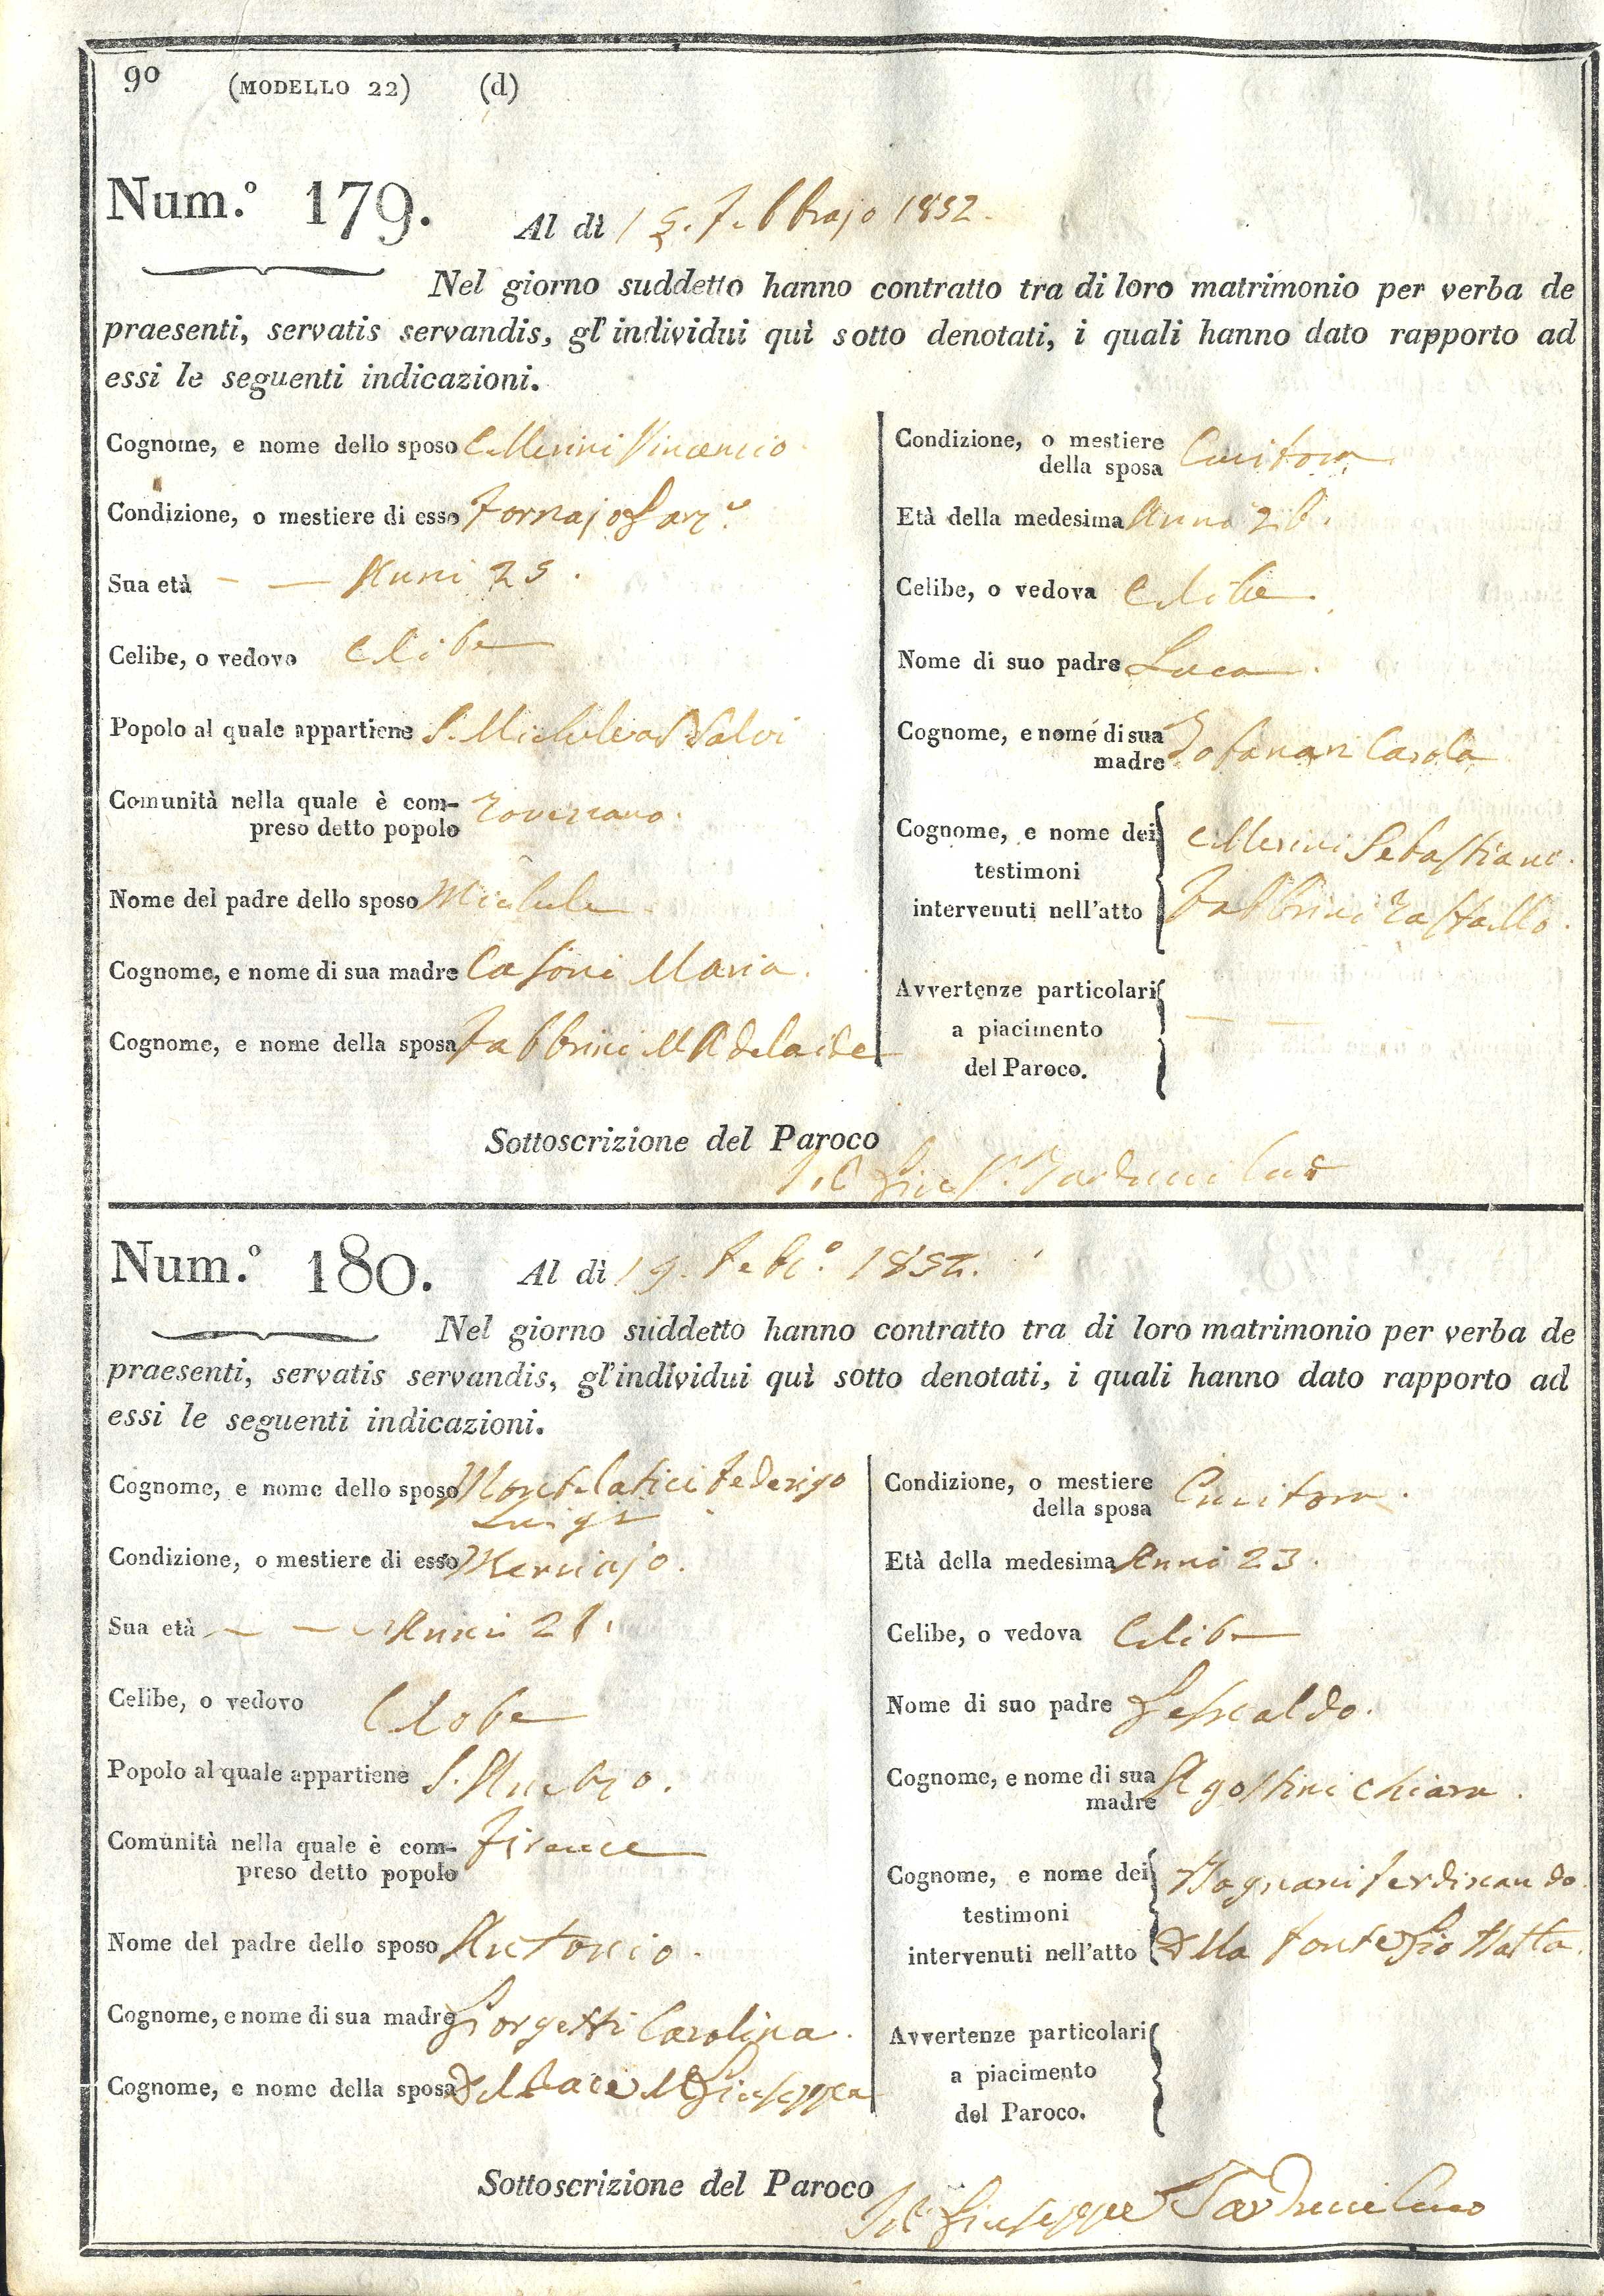 90 (MODELLO 22) (d)
Num.º 179. Al dì 15. Febbrajo 1832.
Nel giorno suddetto hanno contratto tra di loro matrimonio per verba de
praesenti, servatis servandis, gl'individui quì sotto denotati, i quali hanno dato rapporto ad
essi le seguenti indicazioni.
Cognome, e nome dello sposo Cellerini Vincenzio
Condizione, o mestiere di esso Fornajo
Sua età Anni 25.
Celibe, o vedovo Celibe
Popolo al quale appartiene S. Michele a S. Salvi
Comunità nella quale è com-
preso detto popolo Rovezzano.
Nome del padre dello sposo Michele
Cognome, e nome di sua madre Casoni Maria.
Cognome, e nome della sposa Fabbrini M Adelaide
Condizione, o mestiere
della sposa Cucitora
Età della medesima Anni 26.
Celibe, o vedova Celibe
Nome di suo padre Luca.
Cognome, e nome di sua
madre Fofanari Carola
Cognome, e nome dei Cellerini Sebastiano.
testimoni
intervenuti nell'atto Fabbrini Raffaello.
Avvertenze particolari
a piacimento
del Paroco.
Sottoscrizione del Paroco
Num.º 180. Al dì 19. Feb.º 1832.
Nel giorno suddetto hanno contratto tra di loro matrimonio per verba de
praesenti, servatis servandis, gl'individui quì sotto denotati, i quali hanno dato rapporto ad
essi le seguenti indicazioni.
Cognome, e nome dello sposo Montelatici Federigo
Luigi
Condizione, o mestiere di esso Merciajo.
Sua età Anni 21.
Celibe, o vedovo Celobe
Popolo al quale appartiene S. Ambro.
Comunità nella quale è com-
preso detto popolo Firenze
Nome del padre dello sposo Antonio.
Cognome, e nome di sua madre Giorgetti Carolina.
Cognome, e nome della sposa M Giuseppa
Condizione, o mestiere
della sposa Cucitora.
Età della medesima Anni 23.
Celibe, o vedova Celibe
Nome di suo padre Gesualdo.
Cognome, e nome di sua
madre Agostini Chiara.
Cognome, e nome dei Bagnani Ferdinando.
testimoni
intervenuti nell'atto della Fonte Gio Batta.
Avvertenze particolari
a piacimento
del Paroco.
Sottoscrizione del Paroco
Giuseppe